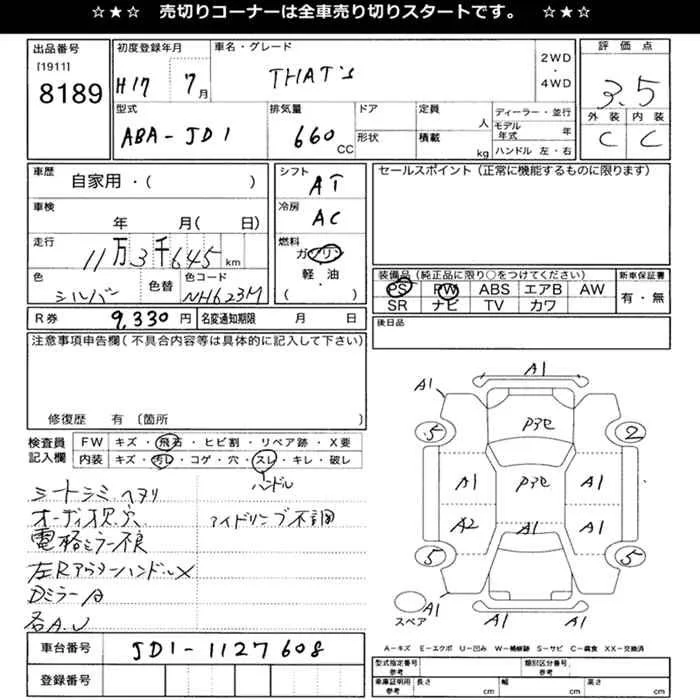 ☆★☆ 売切りコーナーは全車売り切りスタートです。 ☆★☆
出品番号
[1911]
8189
初度登録年月
H17 7月
車名・グレード
THAT's
2WD
・
4WD
評価点
3.5
外装 内装
C C
型式
ABA-JD1
排気量
660 CC
ドア
形状
定員 人
積載 kg
ディーラー・並行
モデル年式 年
ハンドル 左・右
車歴
自家用・( )
車検
年 月( 日)
走行
11万3千645 km
色
シルバー
色替
色コード
NH623M
シフト
AT
冷房
AC
燃料
ガソリン
軽・油
( )
セールスポイント(正常に機能するものに限ります)
装備品(純正品に限り○をつけてください)
PS PW ABS エアB AW
SR ナビ TV カワ
新車保証書
有・無
後日品
R券 9,330円
名変通知期限 月 日
注意事項申告欄(不具合内容等は具体的に記入して下さい)
修復歴 有 〔箇所
検査員記入欄
FW キズ・飛石・ヒビ割・リペア跡・X要
内装 キズ・汚レ・コゲ・穴・スレ・キレ・破レ
ハンドル
シートシミ ヘタリ
アイドリング不調
電格ミラー不良
左Rアウターハンドル X
Dミラー A
各A.U
車台番号 JD1-1127608
登録番号
A1
A1
5
2
P3E
A1
P3E
A1
A2
A1
5
5
スペア
A1
A1
A1
A－キズ E－エクボ U－凹み W－補修跡 S－サビ C－腐食 XX－交換済
型式指定番号 参考
類別区分番号 参考
車庫証明用 参考
長さ cm
幅 cm
高さ cm